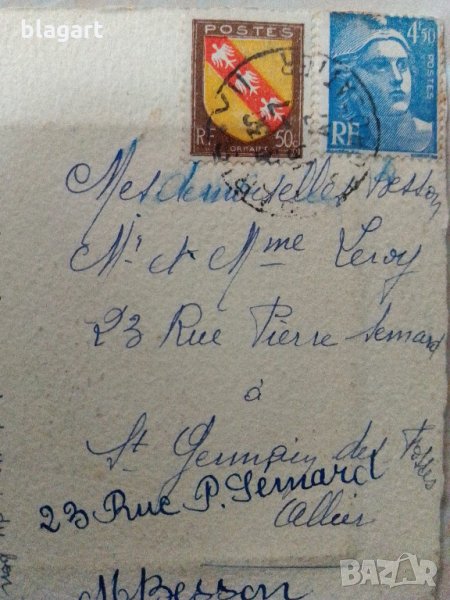 blagart
POSTES
RF
50c
LORRAINE
4f50
POSTES
RF
Mesdemoiselles Besson
Mr & Mme Leroy
23 Rue Pierre Semard
à
St Germain des Fossés
23 Rue P. Semard
Allier
M Besson
BAZAR